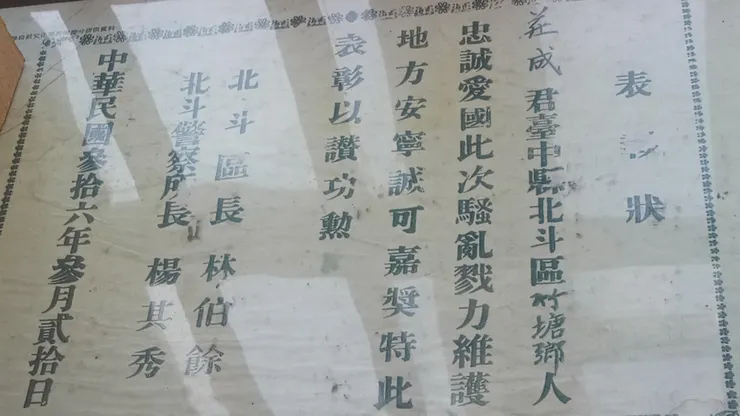 表彰狀
莊成君臺中縣北斗區竹塘鄉人
忠誠愛國此次騷亂戮力維護
地方安寧誠可嘉獎特此
表彰以讚功勲
北斗區長 林伯餘
北斗警察所長 楊其秀
中華民國叄拾六年叄月貳拾日